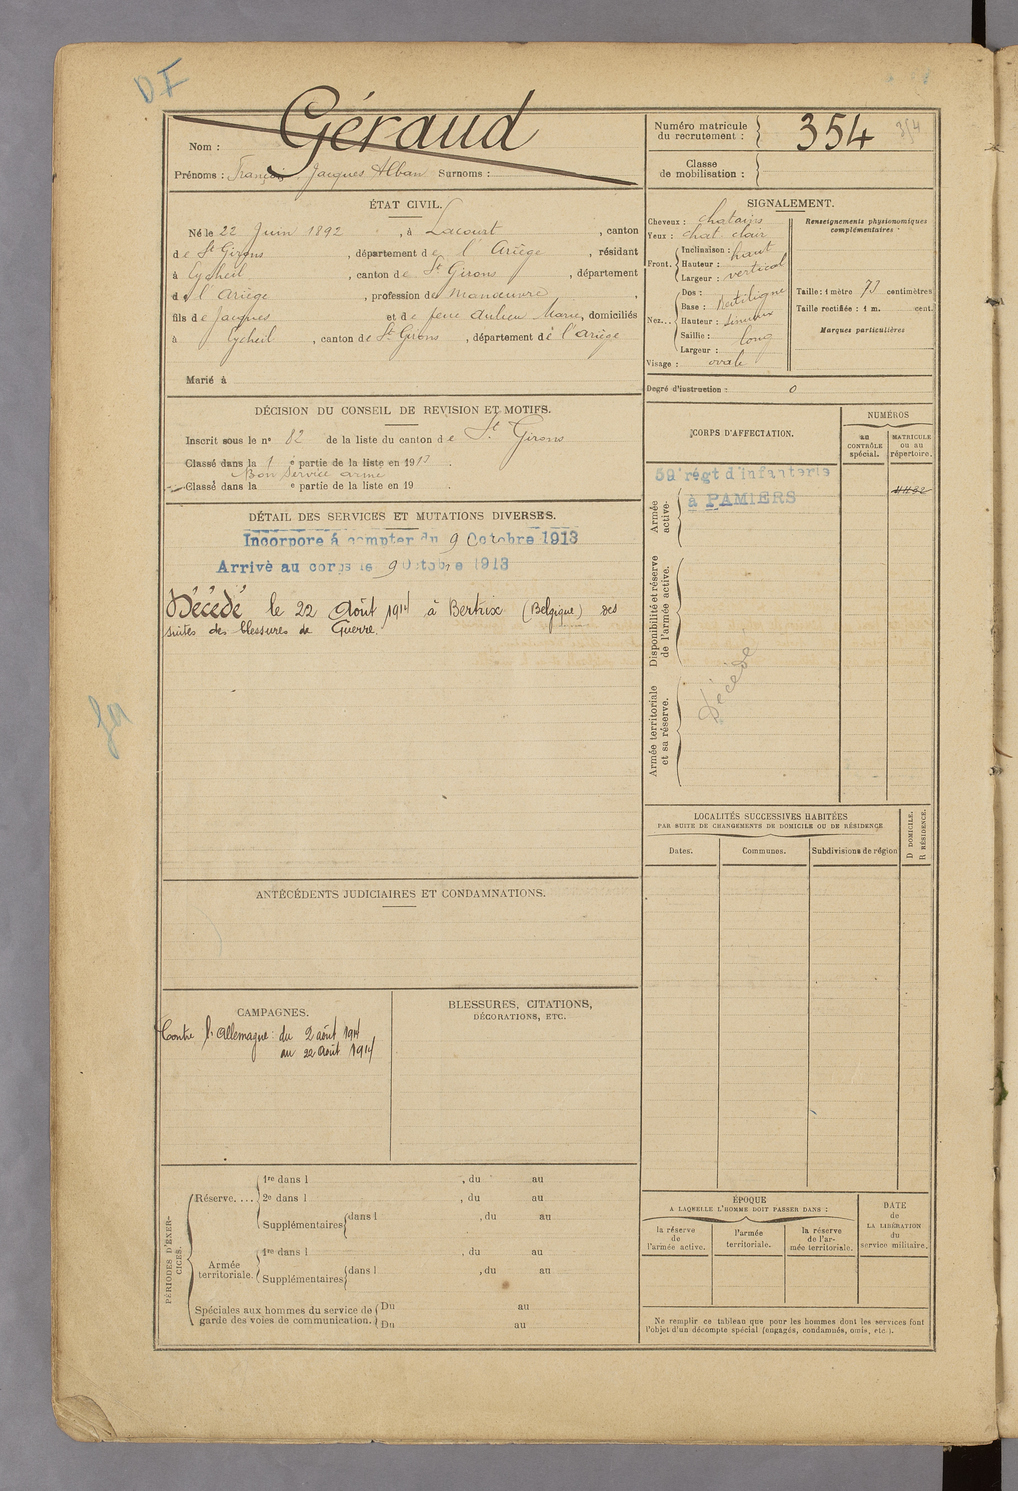 DF
Nom : Géraud
Prénoms : François Jacques Alban Surnoms :
Numéro matricule du recrutement : 354
354
Classe de mobilisation :
ÉTAT CIVIL.
Né le 22 Juin 1892, à Lacourt, canton
de St Girons, département de l'Ariège, résidant
à Eycheil, canton de St Girons, département
de l'Ariège, profession de Manoeuvre,
fils de Jacques et de feue Marie, domiciliés
à Eycheil, canton de St Girons, département de l'Ariège
Marié à
SIGNALEMENT.
Cheveux : chatains
Yeux : chat. clair
Front. Inclinaison : haut
Hauteur : vertical
Largeur :
Nez... Dos : Rectiligne
Base :
Hauteur : Sinueux
Saillie : long
Largeur :
Visage : ovale
Renseignements physionomiques complémentaires :
Taille : 1 mètre 73 centimètres
Taille rectifiée : 1 m. cent.
Marques particulières
Degré d'instruction : 0
DÉCISION DU CONSEIL DE REVISION ET MOTIFS.
Inscrit sous le n° 82 de la liste du canton de St Girons
Classé dans la 1 e partie de la liste en 1913.
Bon service armé
Classé dans la e partie de la liste en 19 .
DÉTAIL DES SERVICES ET MUTATIONS DIVERSES.
Incorporé à compter du 9 Octobre 1913
Arrivé au corps le 9 Octobre 1913
Décédé le 22 Août 1914 à Bertrix (Belgique) des
suites des blessures de Guerre.
CORPS D'AFFECTATION.
NUMÉROS
au CONTRÔLE spécial.
MATRICULE ou au répertoire.
59e régt d'infanterie
à PAMIERS
Armée active.
Disponibilité et réserve de l'armée active.
Décédé
Armée territoriale et sa réserve.
LOCALITÉS SUCCESSIVES HABITÉES
PAR SUITE DE CHANGEMENTS DE DOMICILE OU DE RÉSIDENCE
Dates.
Communes.
Subdivisions de région
D DOMICILE.
R RÉSIDENCE.
ANTÉCÉDENTS JUDICIAIRES ET CONDAMNATIONS.
CAMPAGNES.
Contre l'Allemagne : du 2 août 1914
au 22 Août 1914
BLESSURES, CITATIONS,
DÉCORATIONS, ETC.
PÉRIODES D'EXERCICES.
Réserve.... 1re dans l , du au
2e dans l , du au
Supplémentaires dans l , du au
Armée territoriale. 1re dans l , du au
Supplémentaires dans l , du au
Spéciales aux hommes du service de garde des voies de communication. Du au
Du au
ÉPOQUE
A LAQUELLE L'HOMME DOIT PASSER DANS :
la réserve de l'armée active.
l'armée territoriale.
la réserve de l'armée territoriale.
DATE de LA LIBÉRATION du service militaire.
Ne remplir ce tableau que pour les hommes dont les services font
l'objet d'un décompte spécial (engagés, condamnés, omis, etc.).